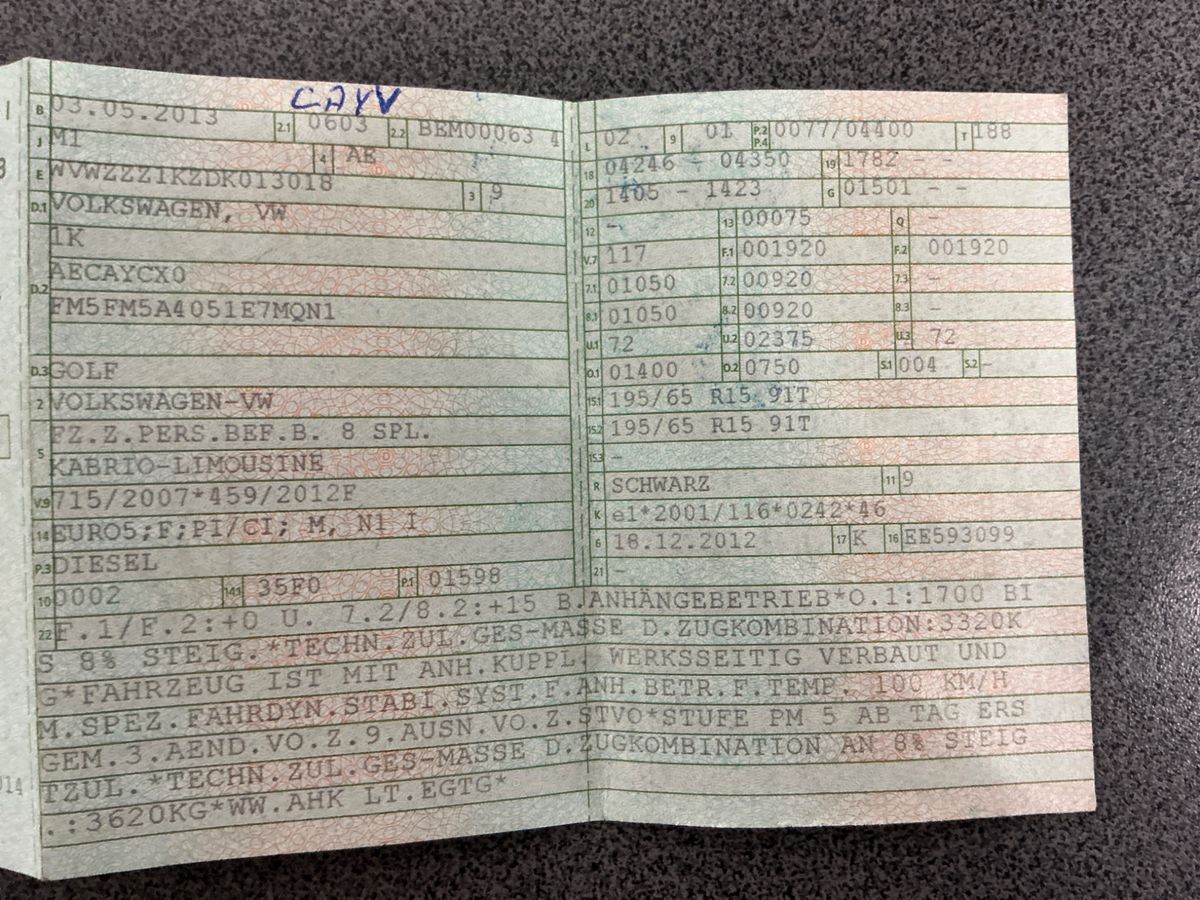 CAYV
B 03.05.2013 2.1 0603 2.2 BEM00063 4
J M1 4 AE
E WVWZZZ1KZDK013018 3 9
D.1 VOLKSWAGEN, VW
1K
D.2 AECAYCX0
FM5FM5A4051E7MQN1
D.3 GOLF
2 VOLKSWAGEN-VW
FZ.Z.PERS.BEF.B. 8 SPL.
5 KABRIO-LIMOUSINE
V.9 715/2007*459/2012F
14 EURO5;F;PI/CI; M, N1 I
P.3 DIESEL
10 0002 14.1 35F0 P.1 01598
L 02 9 01 P.2 P.4 0077/04400 T 188
18 04246 - 04350 19 1782 - -
20 1405 - 1423 G 01501 - -
12 - 13 00075 Q -
V.7 117 F.1 001920 F.2 001920
7.1 01050 7.2 00920 7.3 -
8.1 01050 8.2 00920 8.3 -
U.1 72 U.2 02375 U.3 72
O.1 01400 O.2 0750 S.1 004 S.2 -
15.1 195/65 R15 91T
15.2 195/65 R15 91T
15.3 -
R SCHWARZ 11 9
K e1*2001/116*0242*46
6 18.12.2012 17 K 16 EE593099
21 -
22 F.1/F.2:+0 U. 7.2/8.2:+15 B.ANHÄNGEBETRIEB*O.1:1700 BI
S 8% STEIG.*TECHN.ZUL.GES-MASSE D.ZUGKOMBINATION:3320K
G*FAHRZEUG IST MIT ANH.KUPPL. WERKSSEITIG VERBAUT UND
M.SPEZ.FAHRDYN.STABI.SYST.F.ANH.BETR.F.TEMP. 100 KM/H
GEM.3.AEND.VO.Z.9.AUSN.VO.Z.STVO*STUFE PM 5 AB TAG ERS
TZUL.*TECHN.ZUL.GES-MASSE D.ZUGKOMBINATION AN 8% STEIG
.:3620KG*WW.AHK LT.EGTG*